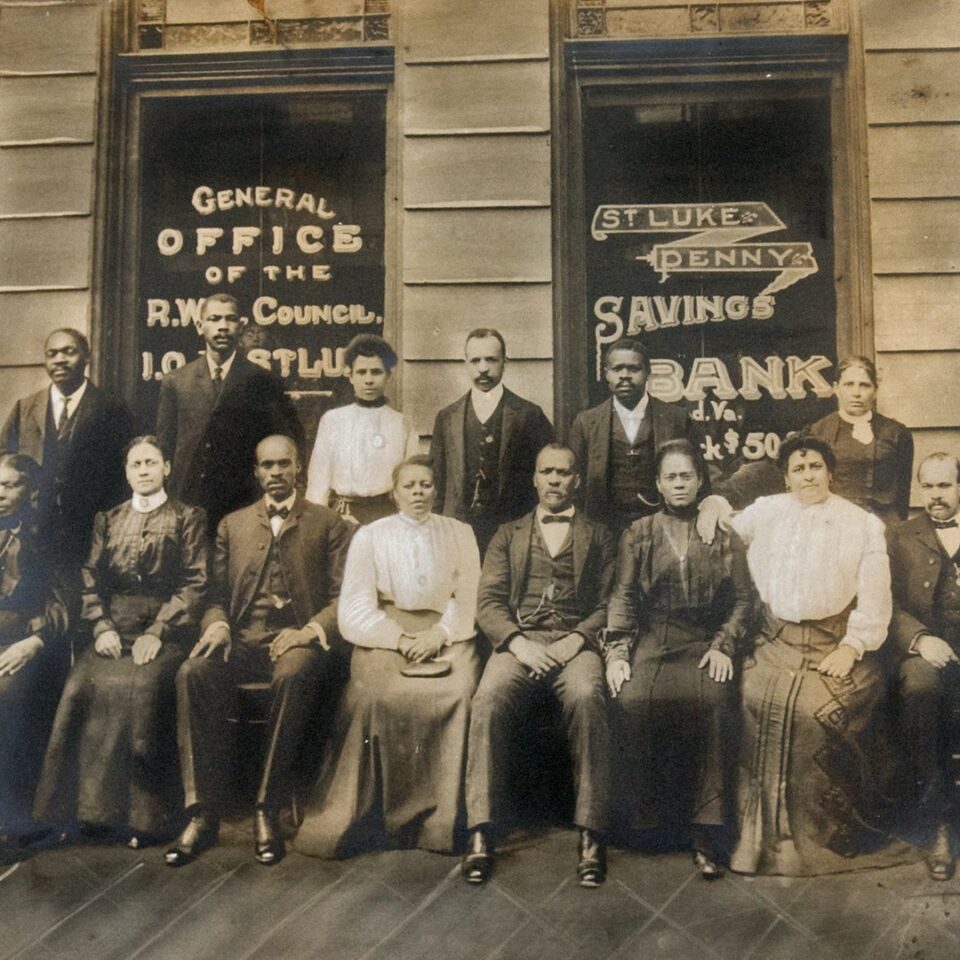 GENERAL
OFFICE
OF THE
R.W. COUNCIL,
I.O. ST LU
ST LUKE
PENNY
SAVINGS
BANK
d. Va.
k $50